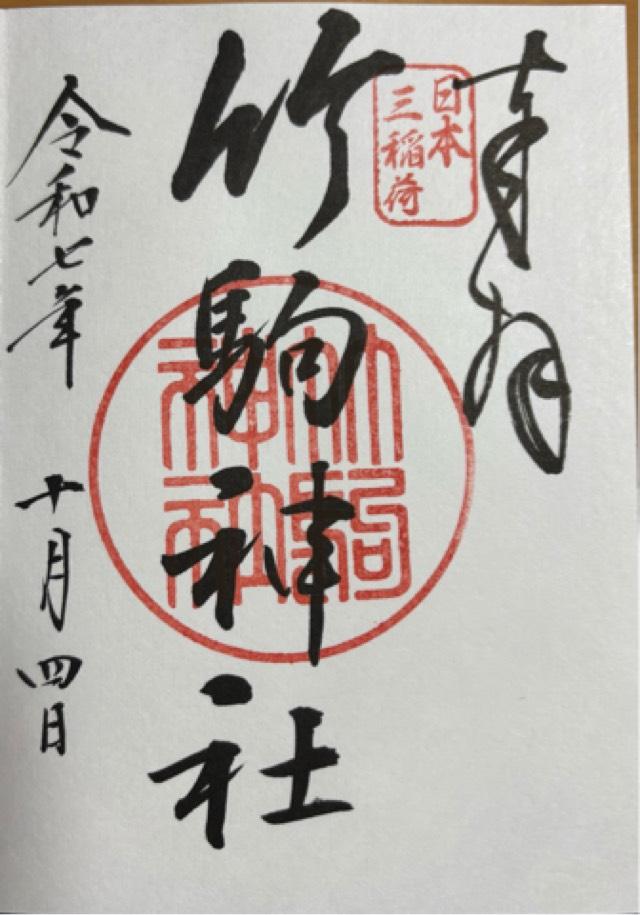 奉拝
日本
三稲荷
竹駒神社
竹駒
神社
令和七年 十月四日